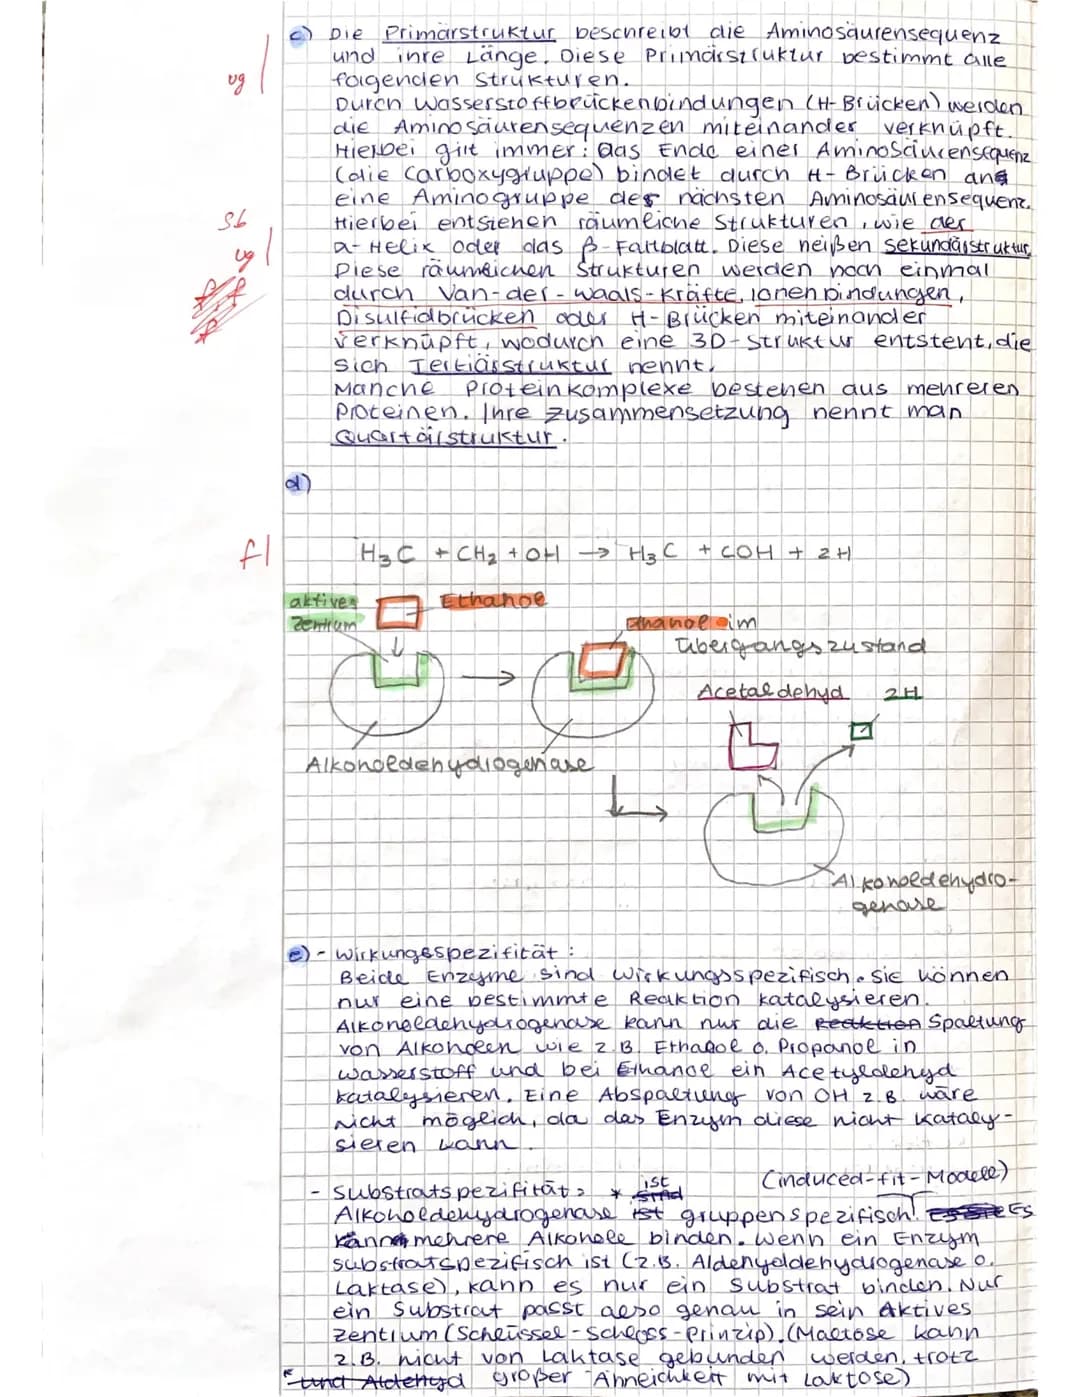 c) Die Primärstruktur beschreibt die Aminosäurensequenz
und ihre Länge. Diese Primärstruktur bestimmt alle
ug
folgenden Strukturen.
Durch Wasserstoffbrückenbindungen (H-Brücken) werden
die Aminosäurensequenzen miteinander verknüpft.
Hierbei gilt immer: das Ende einer Aminosäurensequenz
(die Carboxygruppe) bindet durch H-Brücken an
eine Aminogruppe der nächsten Aminosäurensequenz.
Sb
Hierbei entstehen räumliche Strukturen, wie der
ug
α-Helix oder das β-Faltblatt. Diese heißen Sekundärstruktur.
Diese räumlichen Strukturen werden noch einmal
durch Van-der-Waals-Kräfte, Ionenbindungen,
Disulfidbrücken oder H-Brücken miteinander
verknüpft, wodurch eine 3D-Struktur entsteht, die
sich Tertiärstruktur nennt.
Manche Proteinkomplexe bestehen aus mehreren
Proteinen. Ihre Zusammensetzung nennt man
Quartärstruktur.
d)
f
H₃C + CH₂ + OH → H₃C + COH + 2H
aktives Zentrum
Ethanol
Ethanol im
Übergangszustand
Acetaldehyd 2H
Alkoholdehydrogenase
Alkoholdehydro-
genase
e) - Wirkungsspezifität:
Beide Enzyme sind wirkungsspezifisch. Sie können
nur eine bestimmte Reaktion katalysieren.
Alkoholdehydrogenase kann nur die Reaktion Spaltung
von Alkoholen wie z.B. Ethanol o. Propanol in
Wasserstoff und bei Ethanol ein Acetyldehyd
katalysieren. Eine Abspaltung von OH z.B. wäre
nicht möglich, da das Enzym diese nicht kataly-
sieren kann.
- Substratspezifität: * ist (induced-fit-Modell)
Alkoholdehydrogenase ist gruppenspezifisch. Es
kann mehrere Alkohole binden. Wenn ein Enzym
substratspezifisch ist (z.B. Aldehyldehydrogenase o.
Laktase), kann es nur ein Substrat binden. Nur
ein Substrat passt also genau in sein Aktives
Zentrum (Schlüssel-Schloss-Prinzip). (Maltose kann
z.B. nicht von Laktase gebunden werden, trotz
* und Aldehyd großer Ähnlichkeit mit Laktose)